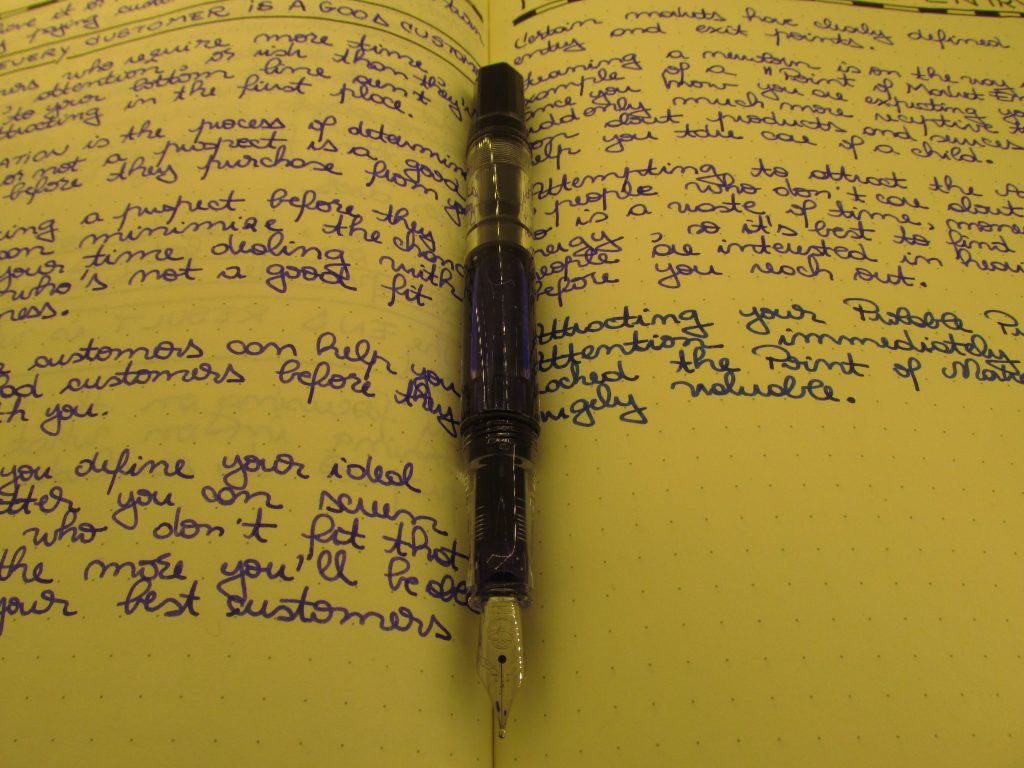 EVERY CUSTOMER IS A GOOD CUSTOM
who require more time,
attention, or risk than they
to your bottom line aren't
attracting in the first place.
is the process of determin
or not a prospect is a good
before they purchase from
a prospect before they
can minimize the chance
your time dealing with
who's not a good fit
customers can help you
customers before they
th you.
you define your ideal
you can screen
who don't fit that
the more you'll be able
your best customers
ENTRY
Certain markets have clearly defined
entry and exit points.
Learning a newborn is on the way
example of a "Point of Market En
once you know you are expecting yo
suddenly much more receptive t
about products and services
help you take care of a child.
Attempting to attract the At
people who don't care about
is a waste of time, money
energy, so it's best to find
people are interested in hear
before you reach out.
Attracting your Probable P
Attention immediately
the Point of Marke
hugely valuable.